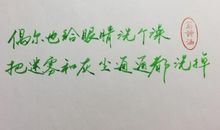 偶尔也给眼睛洗个澡
把迷雾和灰尘通通都洗掉